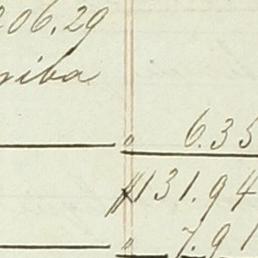 206.29
riba
" 6.35
$131.94
" 7.91